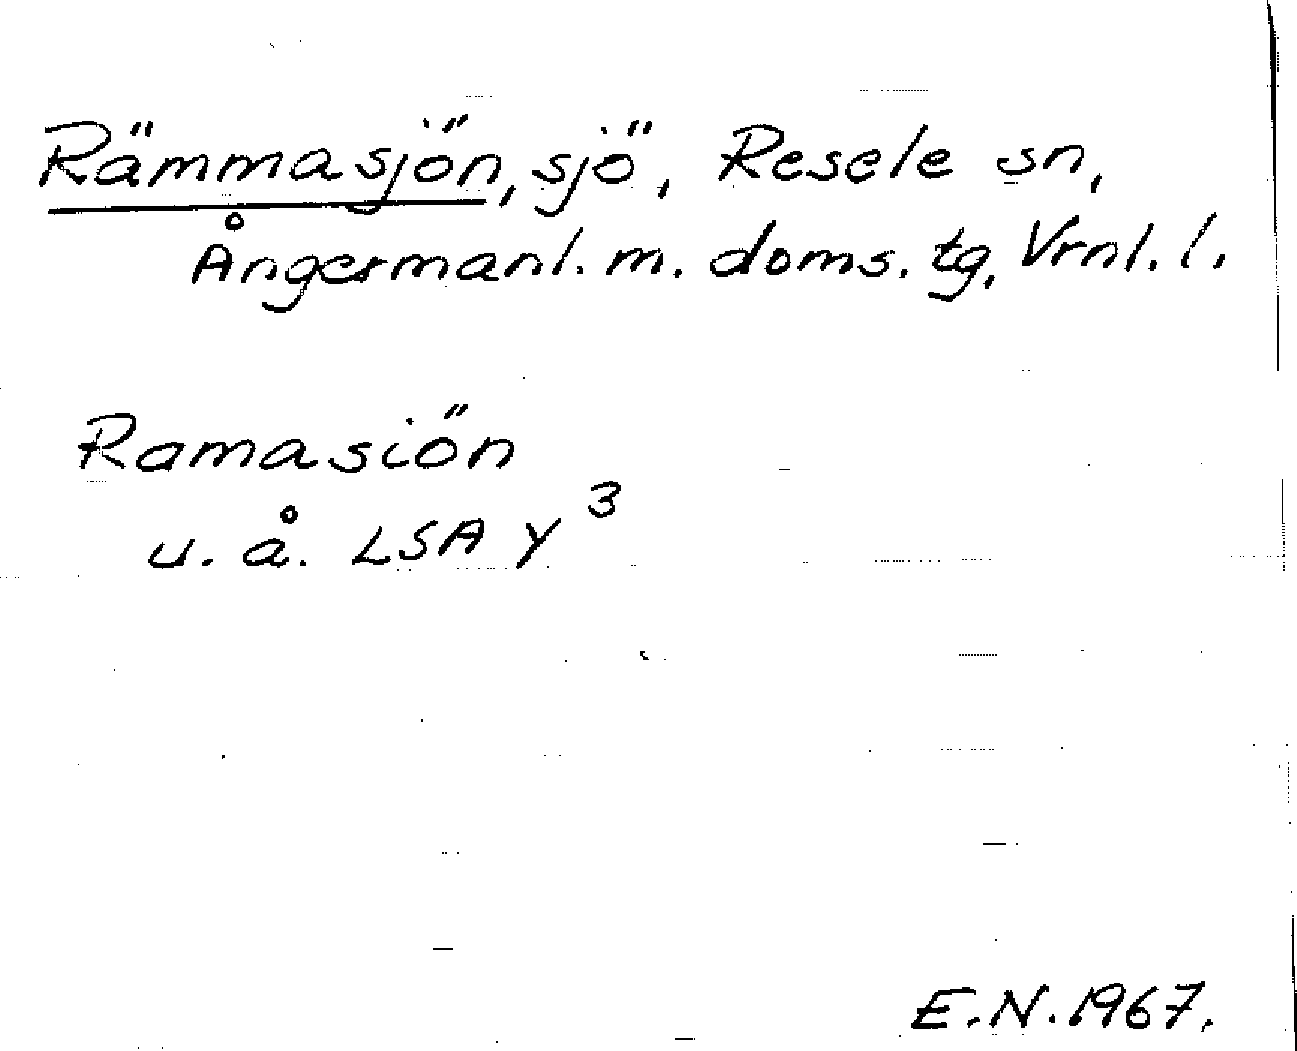 Rämmasjön, sjö, Resele sn,
Ångermanl. m. doms. tg, Vrnl. l.
Ramasiön
u. å. LSA Y³
E.N. 1967.